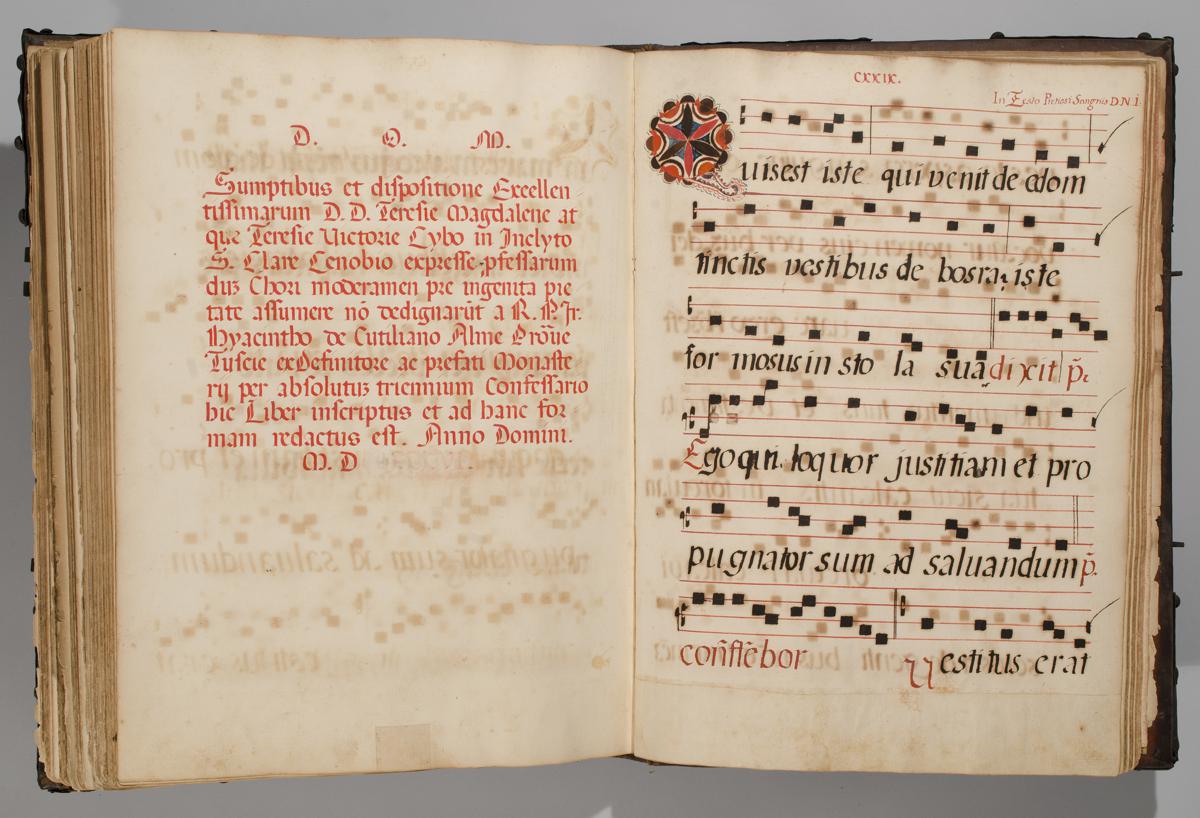 D. O. M.
Sumptibus et dispositione Excellen
tissimarum D. D. Teresie Magdalene at
que Teresie Victorie Cybo in Inclyto
S. Clare Cenobio expresse pfessarum
diz Chori moderamen pre ingenita pie
tate assumere nō dedignarūt a R. P. Fr.
Hyacintho de Cutiliano Alme Prōue
Tuscie exDefinitore ac prefati Monaste
rij per absolutuz triennium Confessario
hic Liber inscriptus et ad hanc for
mam redactus est. Anno Domini.
M. D
cxxix.
In Festo Pretiosi Sangnis D.N.I.
Quisest iste qui venit de edom
tinctis vestibus de bosra, iste
for mosus in sto la sua dixit p̄.
Ego qui loquor justitiam et pro
pugnator sum ad saluandum p̄.
confitebor Vestitus erat